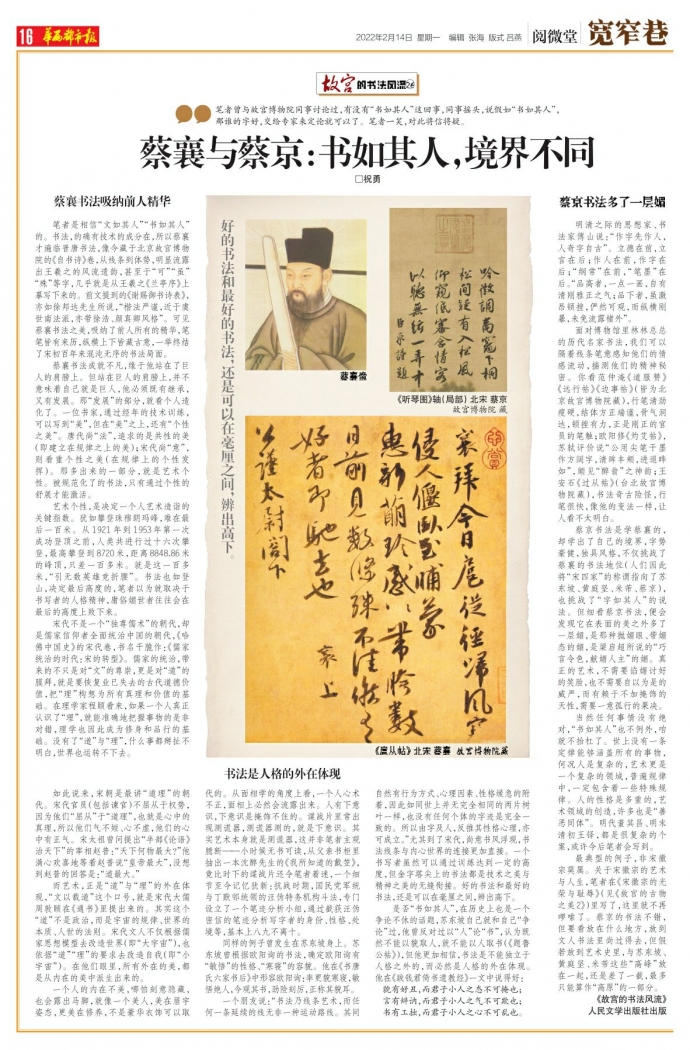 16 华西都市报
2022年2月14日 星期一 编辑 张海 版式 吕燕 阅微堂 宽窄巷
故宫的书法风流
笔者曾与故宫博物院同事讨论过,有没有“书如其人”这回事,同事摇头,说假如“书如其人”,
那谁的字好,交给专家来定论就可以了。笔者一笑,对此将信将疑。
蔡襄与蔡京:书如其人,境界不同
□祝勇
蔡襄书法吸纳前人精华
笔者是相信“文如其人”“书如其人”
的。书法,的确有技术的成分在,所以蔡襄
才遍临晋唐书法,像今藏于北京故宫博物
院的《自书诗》卷,从线条到体势,明显流露
出王羲之的风流遗韵,甚至于“可”“虽”
“殊”等字,几乎就是从王羲之《兰亭序》上
摹写下来的。前文提到的《谢赐御书诗表》,
亦如徐邦达先生所说,“楷法严谨,近于虞
世南法派,亦带徐浩、颜真卿风格”。可见
蔡襄书法之美,吸纳了前人所有的精华,笔
笔皆有来历,纵横上下皆藏古意,一举终结
了宋初百年来混沌无序的书法局面。
蔡襄书法成就不凡,缘于他站在了巨
人的肩膀上。但站在巨人的肩膀上,并不
意味着自己就是巨人,他必须既有继承,
又有发展。那“发展”的部分,就看个人造
化了。一位书家,通过经年的技术训练,
可以写到“美”,但在“美”之上,还有“个性
之美”。唐代尚“法”,追求的是共性的美
(即建立在规律之上的美);宋代尚“意”,
则看重个性之美(在规律上的个性发
挥)。那多出来的一部分,就是艺术个
性。被规范化了的书法,只有通过个性的
舒展才能激活。
艺术个性,是决定一个人艺术造诣的
关键指数。犹如攀登珠穆朗玛峰,难在最
后一百米。从1921年到1953年第一次
成功登顶之前,人类共进行过十六次攀
登,最高攀登到8720米,距离8848.86米
的峰顶,只差一百多米。就是这一百多
米,“引无数英雄竞折腰”。书法也如登
山,决定最后高度的,笔者以为就取决于
书写者的人格精神,庸俗媚世者往往会在
最后的高度上败下来。
宋代不是一个“独尊儒术”的朝代,却
是儒家信仰者全面统治中国的朝代,《哈
佛中国史》的宋代卷,书名干脆作:《儒家
统治的时代:宋的转型》。儒家的统治,带
来的不只是对“文”的尊崇,更是对“道”的
膜拜,就是要恢复业已失去的古代道德价
值,把“理”构想为所有真理和价值的基
础。在理学家程颐看来,如果一个人真正
认识了“理”,就能准确地把握事物的是非
对错,理学也因此成为修身和品行的基
础。没有了“道”与“理”,什么事都掰扯不
明白,世界也运转不下去。
好的书法和最好的书法,还是可以在毫厘之间,辨出高下。
蔡襄像
吟徵调商灶下桐
松间疑有入松风
仰窥低审含情客
以听无弦一弄中
臣京谨题
《听琴图》轴(局部) 北宋 蔡京
故宫博物院 藏
襄拜今日扈从径归风寒
侵人偃卧至晡蒙
惠新萌珍感珍感带胯数
日前见数条殊不佳候有
好者即驰去也
襄上
公谨太尉阁下
《扈从帖》北宋 蔡襄 故宫博物院藏
书法是人格的外在体现
如此说来,宋朝是最讲“道理”的朝
代。宋代官员(包括谏官)不屈从于权势,
因为他们“屈从”于“道理”,也就是心中的
真理,所以他们气不短、心不虚,他们的心
中有正气。宋太祖曾问提出“半部《论语》
治天下”的宰相赵普:“天下何物最大?”他
满心欢喜地等着赵普说“皇帝最大”,没想
到赵普的回答是:“道最大。”
而艺术,正是“道”与“理”的外在体
现,“文以载道”这个口号,就是宋代大儒
周敦颐在《通书》里提出来的。其实这个
“道”不是政治,而是宇宙的规律,世界的
本质、人世的法则。宋代文人不仅根据儒
家思想模型去改造世界(即“大宇宙”),也
依据“道”“理”的要求去改造自我(即“小
宇宙”)。在他们眼里,所有外在的美,都
是从内在的美中派生出来的。
一个人的内在不美,哪怕刻意隐藏,
也会露出马脚,就像一个美人,美在眉宇
姿态,更美在修养,不是豪华衣饰可以取
代的。从面相学的角度上看,一个人心术
不正,面相上必然会流露出来。人有下意
识,下意识是掩饰不住的。谍战片里常出
现测谎器,测谎器测的,就是下意识。其
实艺术本身就是测谎器,这并非笔者主观
臆断——小时候无书可读,从父亲书柜里
抽出一本沈醉先生的《我所知道的戴笠》,
竟比时下的谍战片还令笔者着迷,一个细
节至今记忆犹新:抗战时期,国民党军统
与丁默邨统领的汪伪特务机构斗法,专门
设立了一个笔迹分析小组,通过截获汪伪
密信的笔迹分析写字者的身份、性格、处
境等,基本上八九不离十。
同样的例子曾发生在苏东坡身上。苏
东坡曾根据欧阳询的书法,确定欧阳询有
“敏悟”的性格、“寒寝”的容貌。他在《书唐
氏六家书后》中形容欧阳询:率更貌寒寝,敏
悟绝人,今观其书,劲险刻厉,正称其貌耳。
一个朋友说:“书法乃线条艺术,而任
何一条延续的线无非一种运动路线。其间
自然有行为方式、心理因素、性格缓急的附
着,因此如同世上并无完全相同的两片树
叶一样,也没有任何个体的字迹是完全一
致的。所以由字及人,反推其性格心理,亦
可成立。”尤其到了宋代,尚意书风浮现,书
法线条与内心世界的连接更加直接。一个
书写者虽然可以通过训练达到一定的高
度,但金字塔尖上的书法都是技术之美与
精神之美的无缝衔接。好的书法和最好的
书法,还是可以在毫厘之间,辨出高下。
是否“书如其人”,在历史上也是一个
争论不休的话题,苏东坡自己就和自己“争
论”过,他曾反对过以“人”论“书”,认为既
然不能以貌取人,就不能以人取书(《题鲁
公帖》),但他更加相信,书法是不能独立于
人格之外的,而必然是人格的外在体现。
他在《跋钱君倚书遗教经》一文中说得好:
貌有好丑,而君子小人之态不可掩也;
言有辩讷,而君子小人之气不可欺也;
书有工拙,而君子小人之心不可乱也。
蔡京书法多了一层媚
明清之际的思想家、书
法家傅山说:“作字先作人,
人奇字自古”。立德在前,立
言在后;作人在前,作字在
后;“纲常”在前,“笔墨”在
后。“品高者,一点一画,自有
清刚雅正之气;品下者,虽激
昂顿挫,俨然可观,而纵横刚
暴,未免流露楮外”。
面对博物馆里林林总总
的历代名家书法,我们可以
隔着线条笔意感知他们的情
感流动,揣测他们的精神秘
密。你看范仲淹《道服赞》
《远行帖》《边事帖》(皆为北
京故宫博物院藏),行笔清劲
瘦硬,结体方正端谨,骨气洞
达,顿挫有力,正是刚正的官
员的笔触;欧阳修《灼艾帖》,
苏轼评价说“公用尖笔干墨
作方阔字,清眸丰颊,进退晔
如”,颇见“醉翁”之神韵;王
安石《过从帖》(台北故宫博
物院藏),书法奇古险怪,行
笔很快,像他的变法一样,让
人看不太明白。
蔡京书法是学蔡襄的,
却学出了自己的境界,字势
豪健,独具风格,不仅挑战了
蔡襄的书法地位(人们因此
将“宋四家”的称谓指向了苏
东坡、黄庭坚、米芾、蔡京),
也挑战了“字如其人”的说
法。但细看蔡京书法,便会
发现它在表面的美之外多了
一层媚,是那种抛媚眼、带媚
态的媚,是梁启超所说的“巧
言令色,献媚人主”的媚。真
正的艺术,不需要谄媚讨好
的笑脸,也不需要自以为是的
威严,而有赖于不加掩饰的
天性,需要一意孤行的果决。
当然任何事情没有绝
对,“书如其人”也不例外,咱
就不抬杠了。世上没有一条
定律能够涵盖所有的事物,
何况人是复杂的,艺术更是
一个复杂的领域,普遍规律
中,一定包含着一些特殊规
律。人的性格是多重的,艺
术领域的创造,许多也是“善
恶同体”。明代董其昌、明末
清初王铎,都是很复杂的个
案,或许今后笔者会写到。
最典型的例子,非宋徽
宗莫属。关于宋徽宗的艺术
与人生,笔者在《宋徽宗的光
荣与耻辱》(见《故宫的古物
之美2》)里写了,这里就不再
啰嗦了。蔡京的书法不错,
但要看放在什么地方,放到
文人书法里尚过得去,但假
若放到艺术史里,与苏东坡、
黄庭坚、米芾这些“高峰”放
在一起,还是差了一截,最多
只能算作“高原”的一部分。
《故宫的书法风流》
人民文学出版社出版